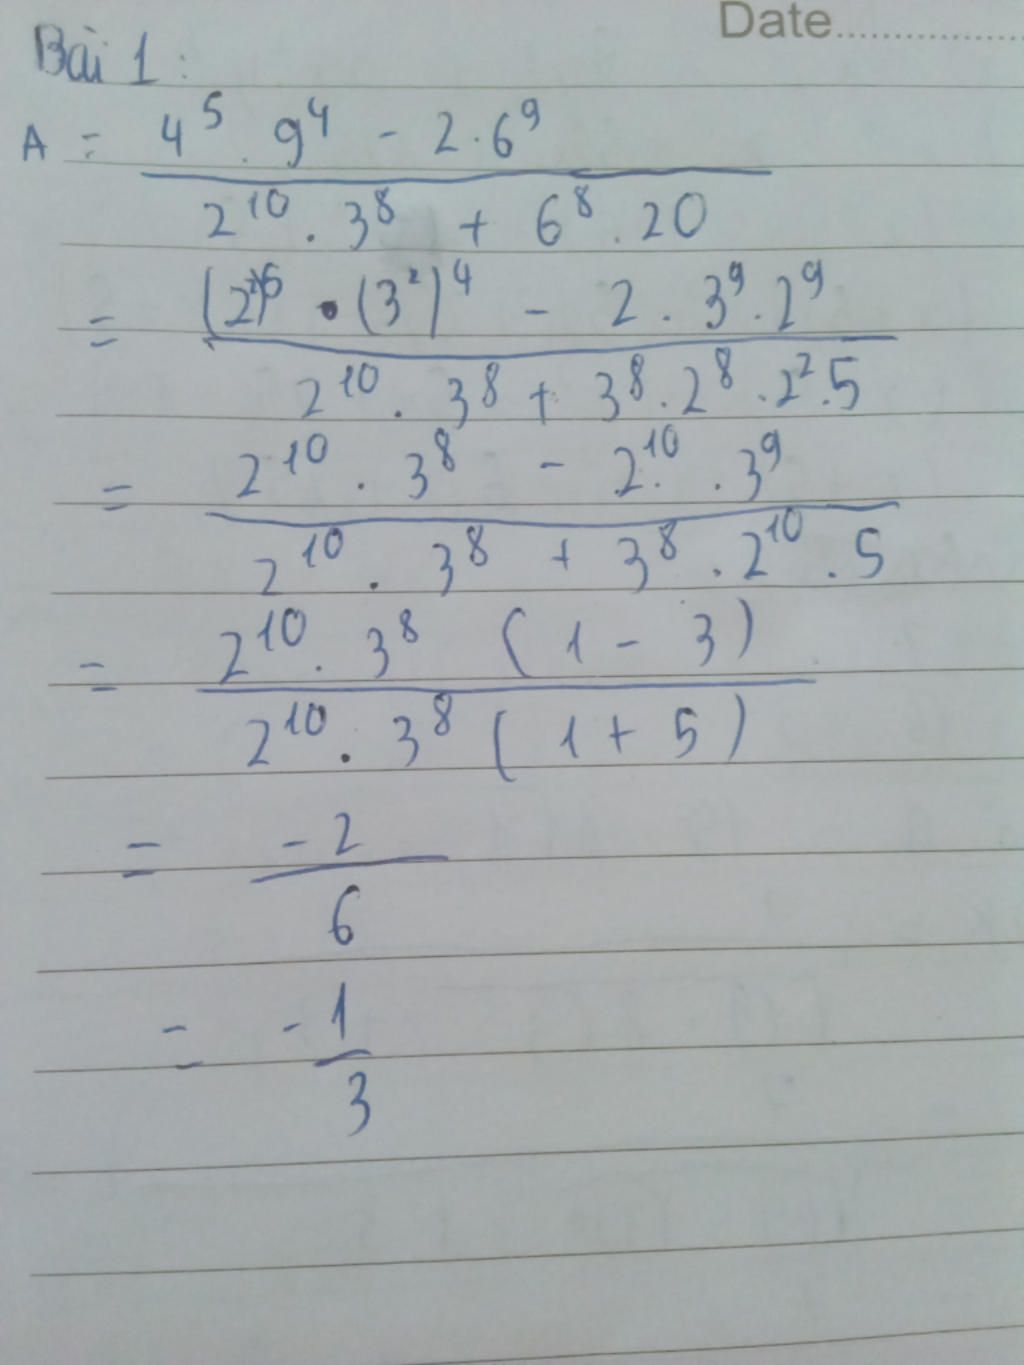 Date...............
Bài 1:
A = \frac{4^5 . 9^4 - 2 . 6^9}{2^{10} . 3^8 + 6^8 . 20}
= \frac{(2^2)^5 . (3^2)^4 - 2 . 3^9 . 2^9}{2^{10} . 3^8 + 3^8 . 2^8 . 2^2 . 5}
= \frac{2^{10} . 3^8 - 2^{10} . 3^9}{2^{10} . 3^8 + 3^8 . 2^{10} . 5}
= \frac{2^{10} . 3^8 (1 - 3)}{2^{10} . 3^8 (1 + 5)}
= \frac{-2}{6}
= -\frac{1}{3}